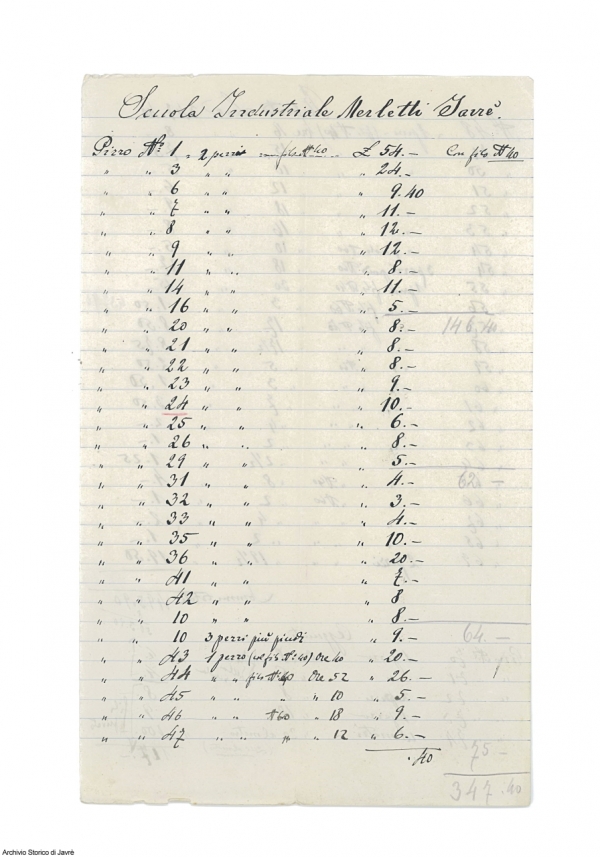 Scuola Industriale Merletti Javrè.
Pizzo Nº 1 = 2 pezzi con filo № 40 £ 54.- Con filo № 40
" " 3 " " " 24.-
" " 6 " " " 9.40
" " 7 " " " 11.-
" " 8 " " " 12.-
" " 9 " " " 12.-
" " 11 " " " 8.-
" " 14 " " " 11.-
" " 16 " " " 5.-
" " 20 " " " 8.- 146.40
" " 21 " " " 8.-
" " 22 " " " 8.-
" " 23 " " " 9.-
" " 24 " " " 10.-
" " 25 " " " 6.-
" " 26 " " " 8.-
" " 29 " " " 5.-
" " 31 " " " 4.- 62 -
" " 32 " " " 3.-
" " 33 " " " 4.-
" " 35 " " " 10.-
" " 36 " " " 20.-
" " 41 " " " 7.-
" " 42 " " " 8
" " 10 " " " 8.-
" " 10 3 pezzi più piccoli " 9.- 64.-
" " 43 1 pezzo (col filo № 40) Ore 40 " 20.-
" " 44 " " filo № 40 Ore 52 " 26.-
" " 45 " " " 10 " 5.-
" " 46 " " № 60 " 18 " 9.-
" " 47 " " " " 12 " 6.-
.40 75 -
347.40
Archivio Storico di Javrè